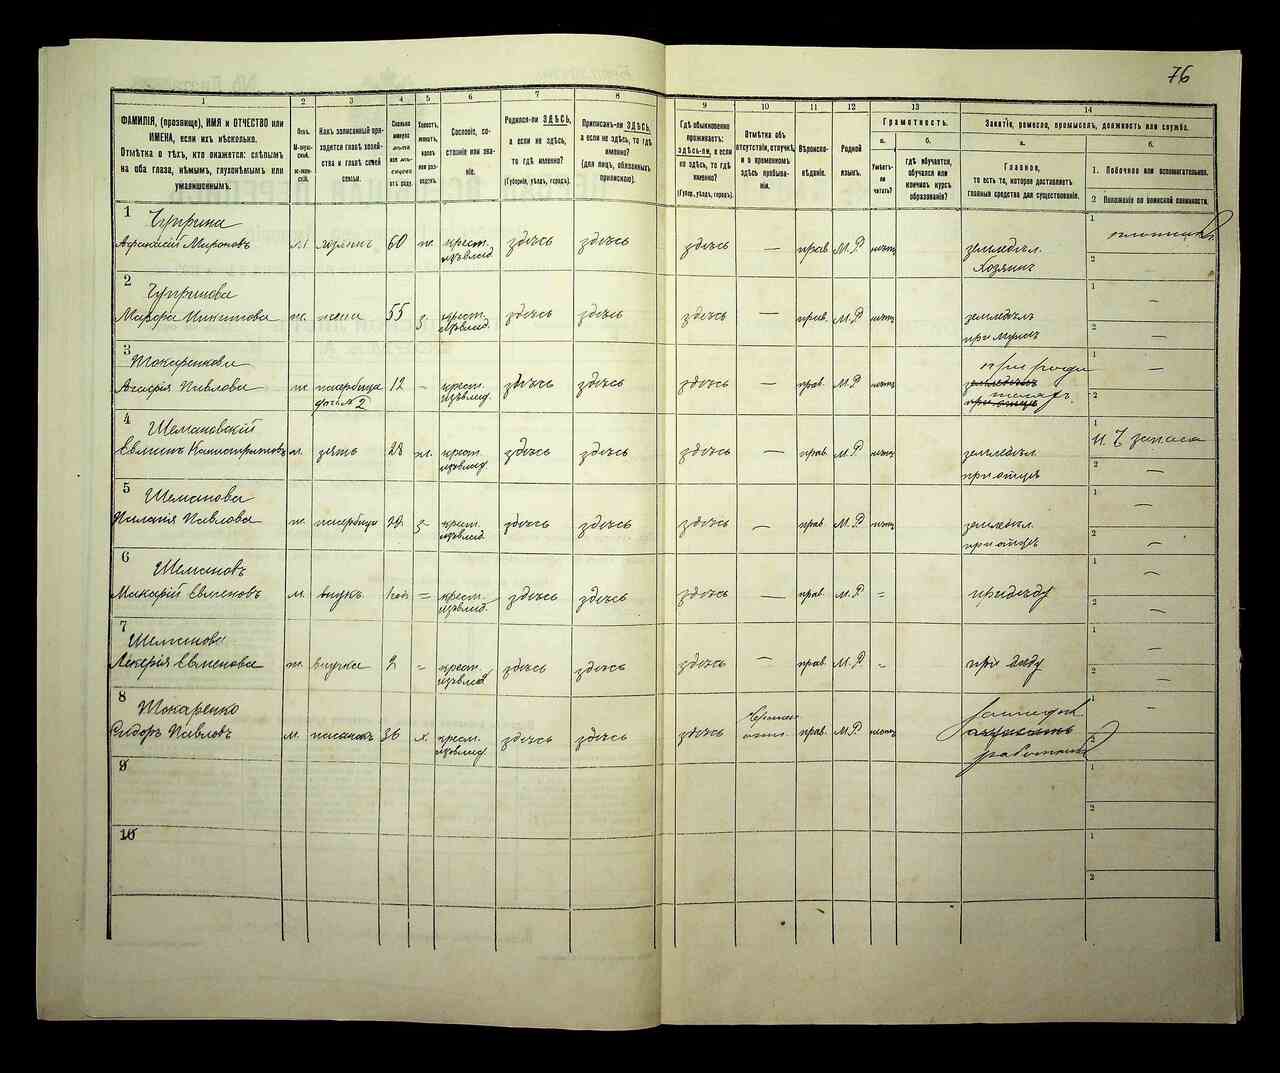 76
1 2 3 4 5 6 7 8 9 10 11 12 13 14
ФАМИЛІЯ, (прозвище), ИМЯ и ОТЧЕСТВО или
ИМЕНА, если ихъ нѣсколько.
Отмѣтка о тѣхъ, кто окажется: слѣпымъ
на оба глаза, нѣмымъ, глухонѣмымъ или
умалишеннымъ.
Полъ.
М-муж-
ской.
Ж-жен-
скій.
Какъ записанный при-
ходится главѣ хозяй-
ства и главѣ своей
семьи.
Сколько
минуло
лѣтъ
или мѣ-
сяцевъ
отъ роду.
Холостъ,
женатъ,
вдовъ
или раз-
веденъ.
Сословіе, со-
стояніе или зва-
ніе.
Родился-ли ЗДѢСЬ,
а если не здѣсь,
то гдѣ именно?
(Губернія, уѣздъ, городъ).
Приписанъ-ли ЗДѢСЬ,
а если не здѣсь, то гдѣ
именно?
(для лицъ, обязанныхъ
припискою).
Гдѣ обыкновенно
проживаетъ:
здѣсь-ли, а если
не здѣсь, то гдѣ
именно?
(Губер., уѣздъ, городъ).
Отмѣтка объ
отсутствіи, отлучкѣ,
и о временномъ
здѣсь пребыва-
ніи.
Вѣроиспо-
вѣданіе.
Родной
языкъ.
Грамотность.
а.
Умѣетъ-
ли
читать?
б.
гдѣ обучается,
обучался или
кончилъ курсъ
образованія?
Занятіе, ремесло, промыселъ, должность или служба.
а.
Главное,
то есть то, которое доставляетъ
главныя средства для существованія.
б.
1. Побочное или вспомогательное.
2 Положеніе по воинской повинности.
1 Чуприна
Афанасій Мироновъ м хозяинъ 60 ж. крест. здѣсь здѣсь здѣсь — прав. М.Р нѣтъ земледѣл.
Хозяинъ
1
2 —
2 Чупринова
Марфа Никитова ж. жена 55 крест. здѣсь здѣсь здѣсь — прав. М.Р нѣтъ земледѣл
при мужѣ
1 —
2 —
3 Токаренкова
Агафія Павлова ж. 12 - крест. здѣсь здѣсь здѣсь — прав. М.Р нѣтъ
дочь № 2
1 —
2
4 Шемановскій
м. зять 28 ж. крест. здѣсь здѣсь здѣсь — прав. М.Р нѣтъ земледѣл.
при отцѣ
1 запаса
2 —
5 Шеманова
Павлова ж. 28 крест. здѣсь здѣсь здѣсь — прав. М.Р нѣтъ земледѣл.
при отцѣ
1 —
2 —
6 Шемановъ
Макарій Евменовъ м. внукъ 1 год = крест. здѣсь здѣсь здѣсь — прав. М.Р =
при дѣду
1 —
2 —
7 Шеманова
Лукерія Евменова ж. внучка 2 = крест. здѣсь здѣсь здѣсь — прав. М.Р =
при дѣду
1 —
2 —
8 Токаренко
Сидоръ Павловъ м. 36 х. крест. здѣсь здѣсь здѣсь прав. М.Р нѣтъ
1 —
2
работникъ
9
1
2
10
1
2